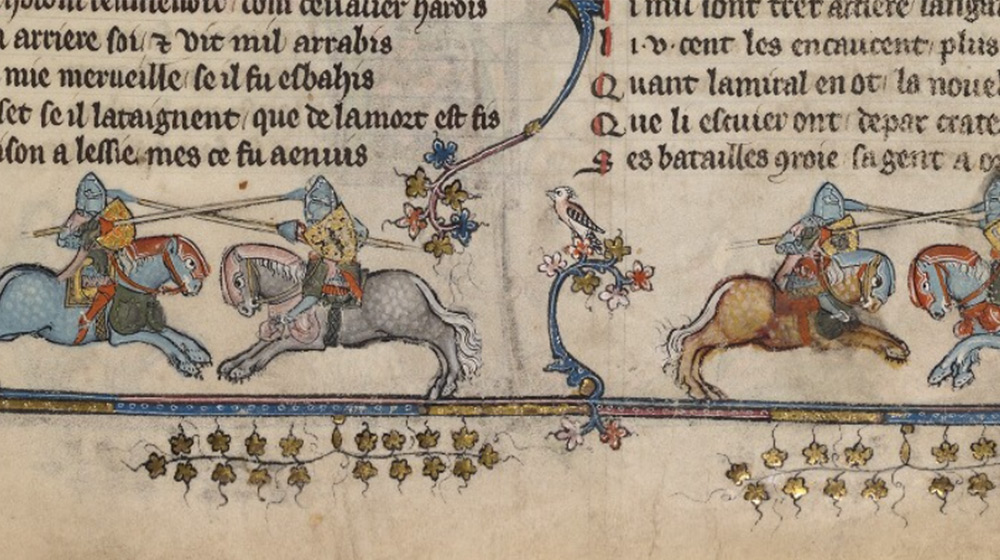 com ceualier hardis
arriere soi ⁊ vit mil arrabis
mie merueille / se il fu esbahis
set se il lataignent / que de lamort est fis
a lessie. mes ce fu aenuis
mil sont tret arriere
.v. cent les encaucent / plus
Quant lamiral en ot / la
Que li escuier ont / depar
es batailles ꝯroie sagent a